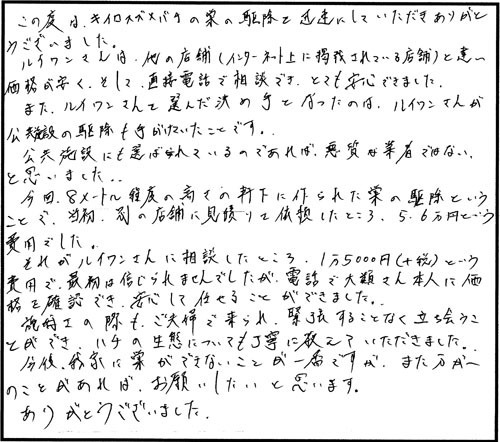 この度は、キイロスズメバチの巣の駆除を迅速にしていただきありがと
うございました。
ルイワンさんは、他の店舗(インターネット上に掲載されている店舗)と違い
価格が安く、そして、直接電話で相談でき、とても安心できました。
また、ルイワンさんを選んだ決め手となったのは、ルイワンさんが
公共施設の駆除も手がけていたことです。
公共施設にも選ばれているのであれば、悪質な業者ではない、
と思いました。
今回、8メートル程度の高さの軒下に作られた巣の駆除という
ことで、当初、別の店舗に見積りを依頼したところ、5、6万円という
費用でした。
それがルイワンさんに相談したところ、1万5000円(+税)という
費用で、最初は信じられませんでしたが、電話で大類さん本人に価
格を確認でき、安心して任せることができました。
の際も、ご夫婦で来られ、緊張することなく立ち会うこ
とができ、ハチの生態についても丁寧に教えていただきました。
今後、我家に巣ができないことが一番ですが、また万が一
のことがあれば、お願いしたいと思います。
ありがとうございました。